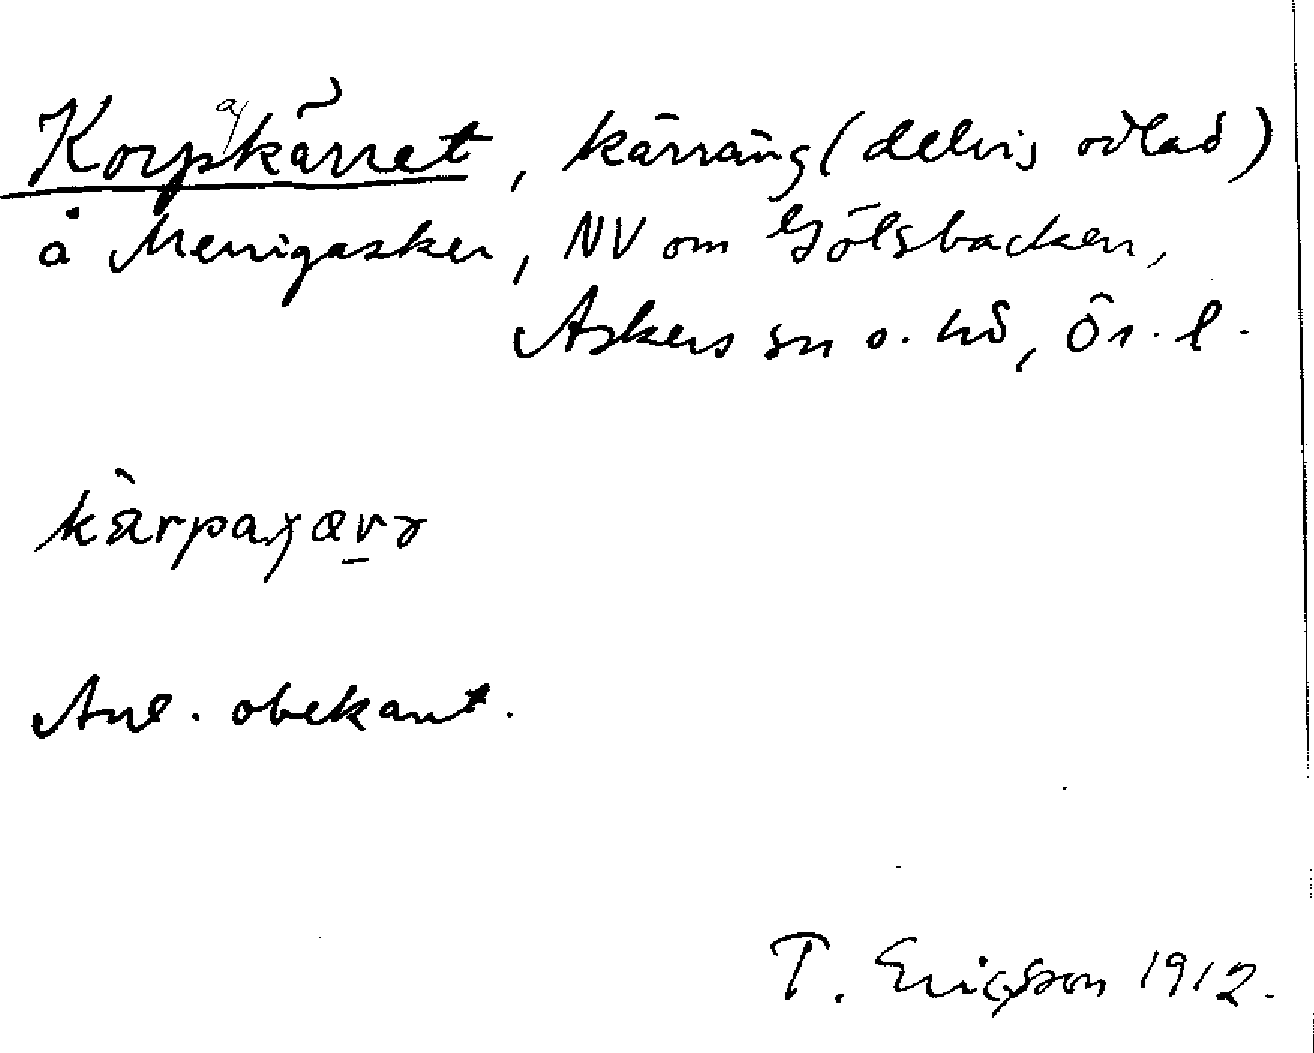 Korpakärret, kärräng (delvis odlad)
å Mennigasker, NV om Gölsbacken,
Askers sn o. hd, Ör. l.
Anl. obekant.
T. Ericsson 1912.